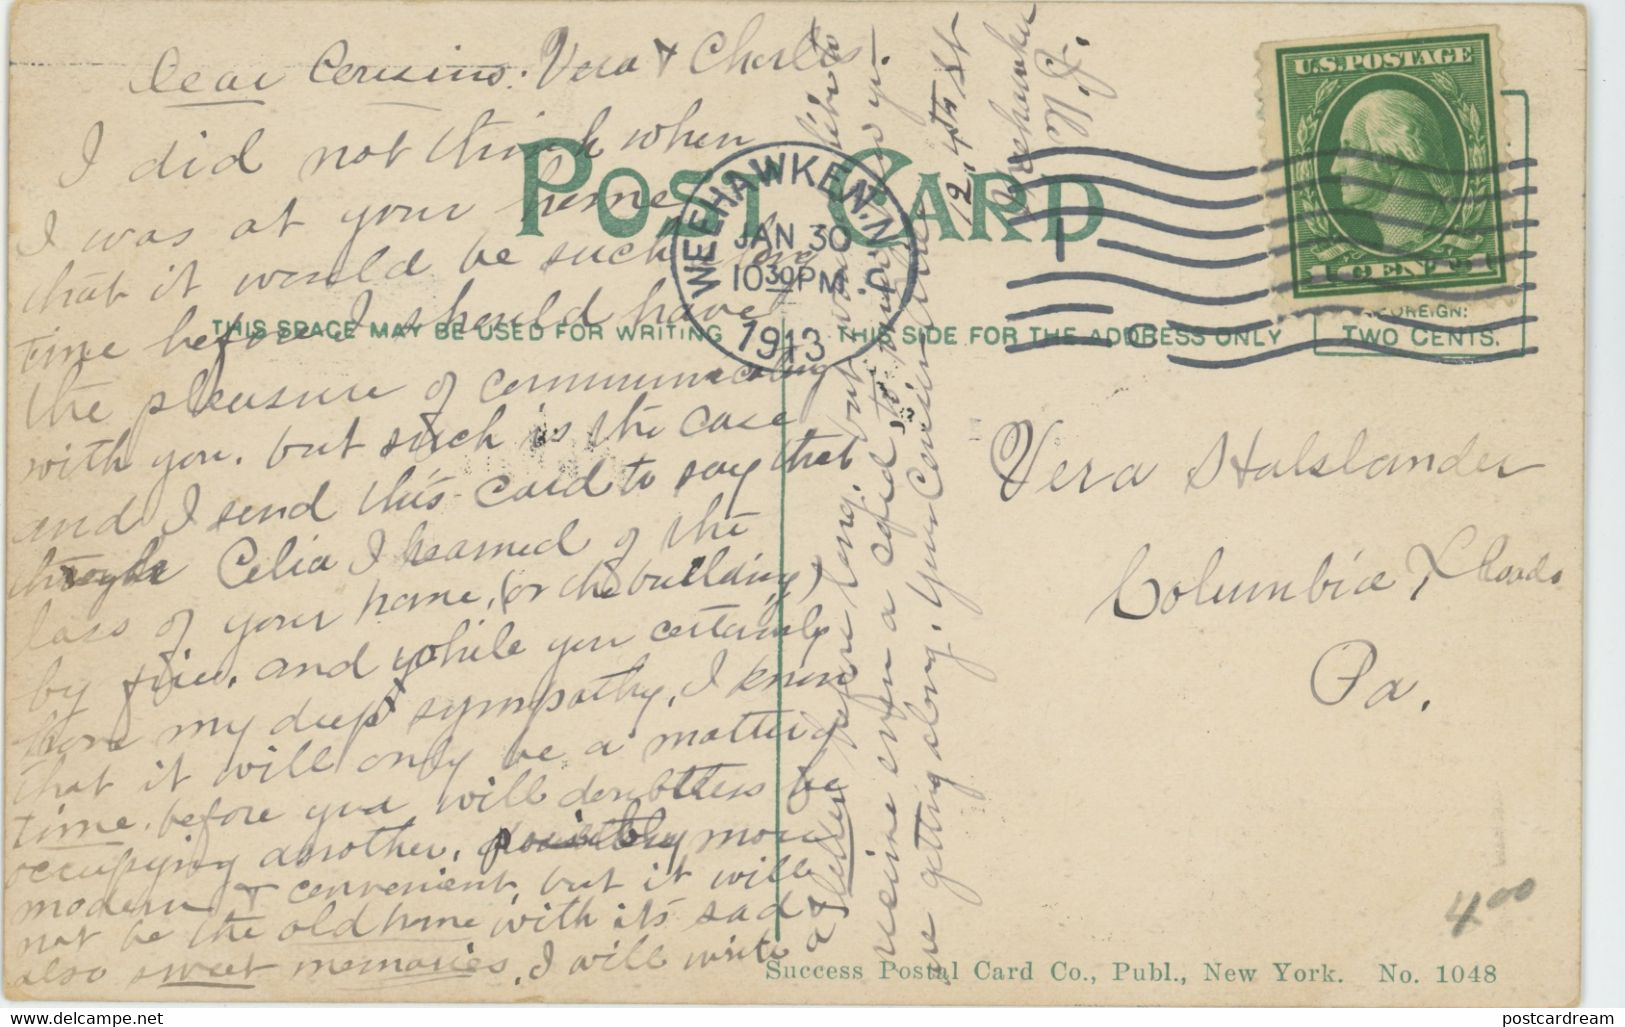 Dear Cousins. Vera & Charles.
I did not think when
I was at your home
that it would be such long
time before I should have
the pleasure of communicating
with you. but such is the case
and I send this card to say that
through Celia I learned of the
loss of your home, (or the building)
by fire. and while you certainly
have my deep sympathy, I know
that it will only be a matter of
time. before you will doubtless be
occupying another, possibly more
modern & convenient, but it will
not be the old home with it's sad &
also sweet memories. I will write
a letter before long. but would like to
receive even a card to know how you
are getting along. Your Cousin
12. 4th St
Weehawken
N. J.
POST CARD
WEEHAWKEN, N.J.
JAN 30
10 30 PM
1913
1
C
THIS SPACE MAY BE USED FOR WRITING
THIS SIDE FOR THE ADDRESS ONLY
U.S. POSTAGE
1 CENT 1
FOREIGN:
TWO CENTS.
Vera Halslander
Columbia X Roads
Pa.
4 00
Success Postal Card Co., Publ., New York. No. 1048
www.delcampe.net
postcardream